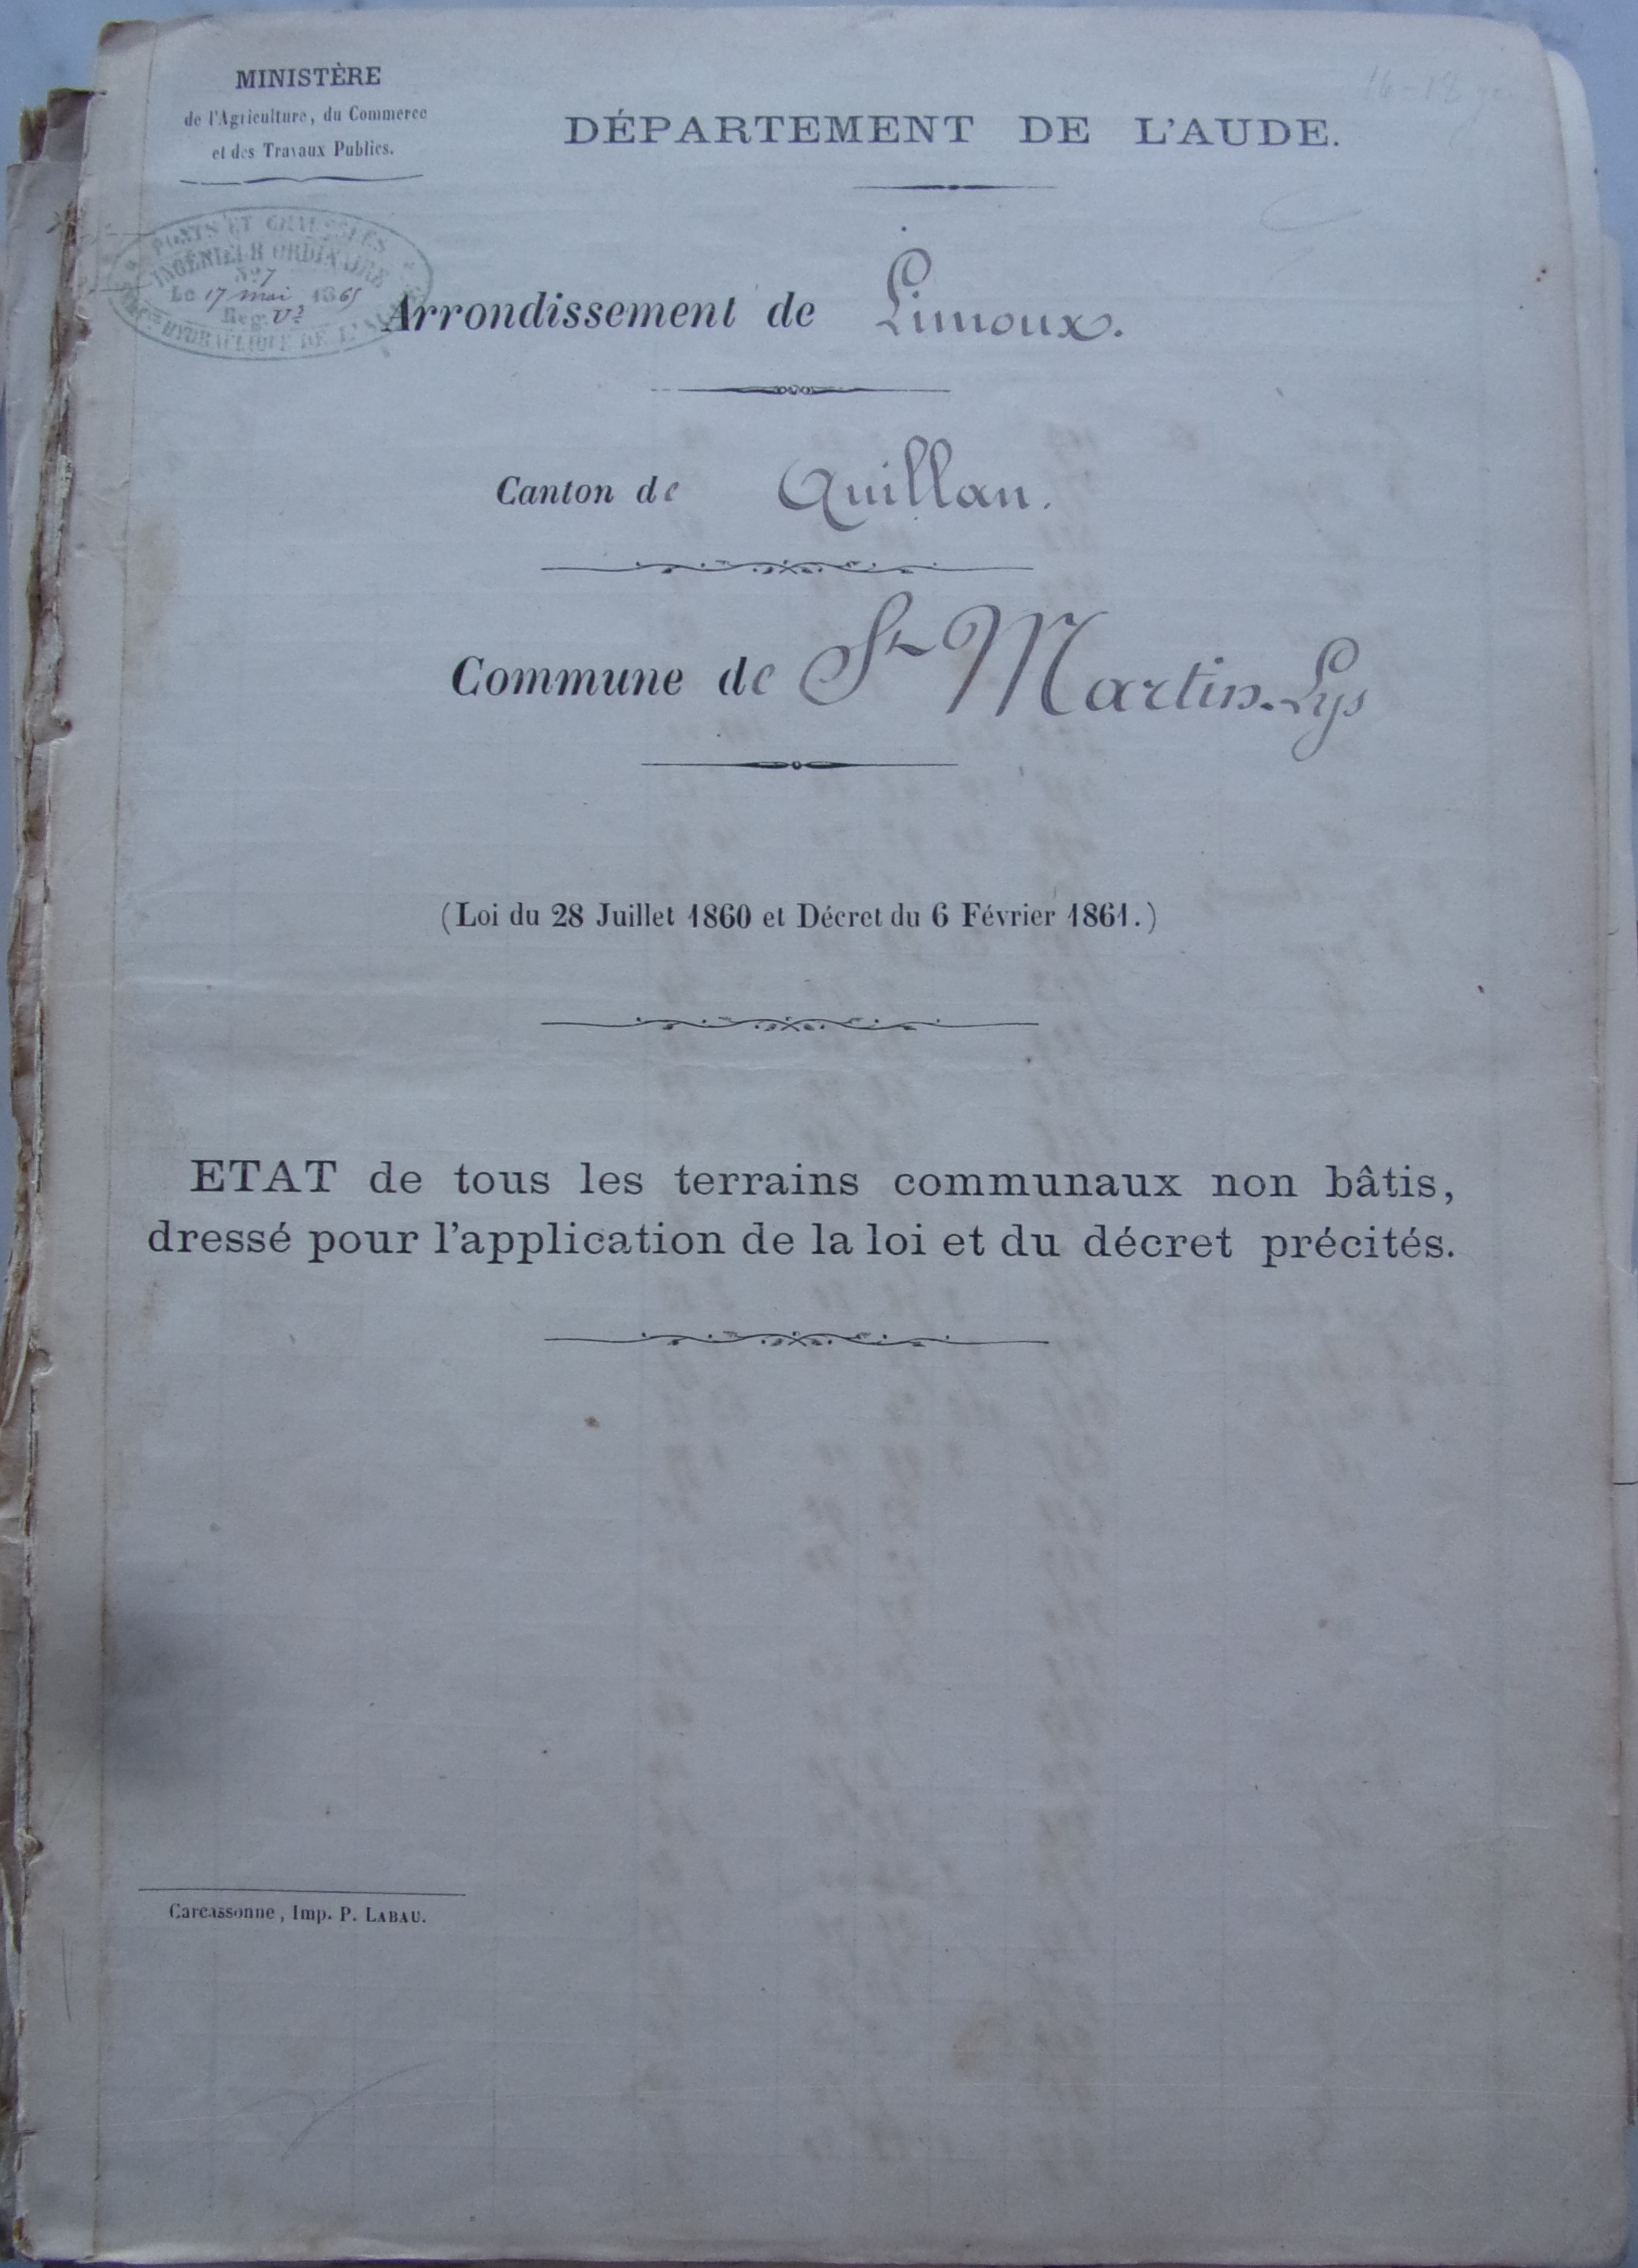 MINISTÈRE
de l'Agriculture, du Commerce
et des Travaux Publics.
DÉPARTEMENT DE L'AUDE.
PONTS ET CHAUSSÉES
INGÉNIEUR ORDINAIRE
N° 7
Le 17 mai 1865
Reg.
HYDRAULIQUE DE L'AUDE
Arrondissement de Limoux.
Canton de Quillan.
Commune de St Martin-Lys
(Loi du 28 Juillet 1860 et Décret du 6 Février 1861.)
ETAT de tous les terrains communaux non bâtis,
dressé pour l'application de la loi et du décret précités.
Carcassonne, Imp. P. LABAU.